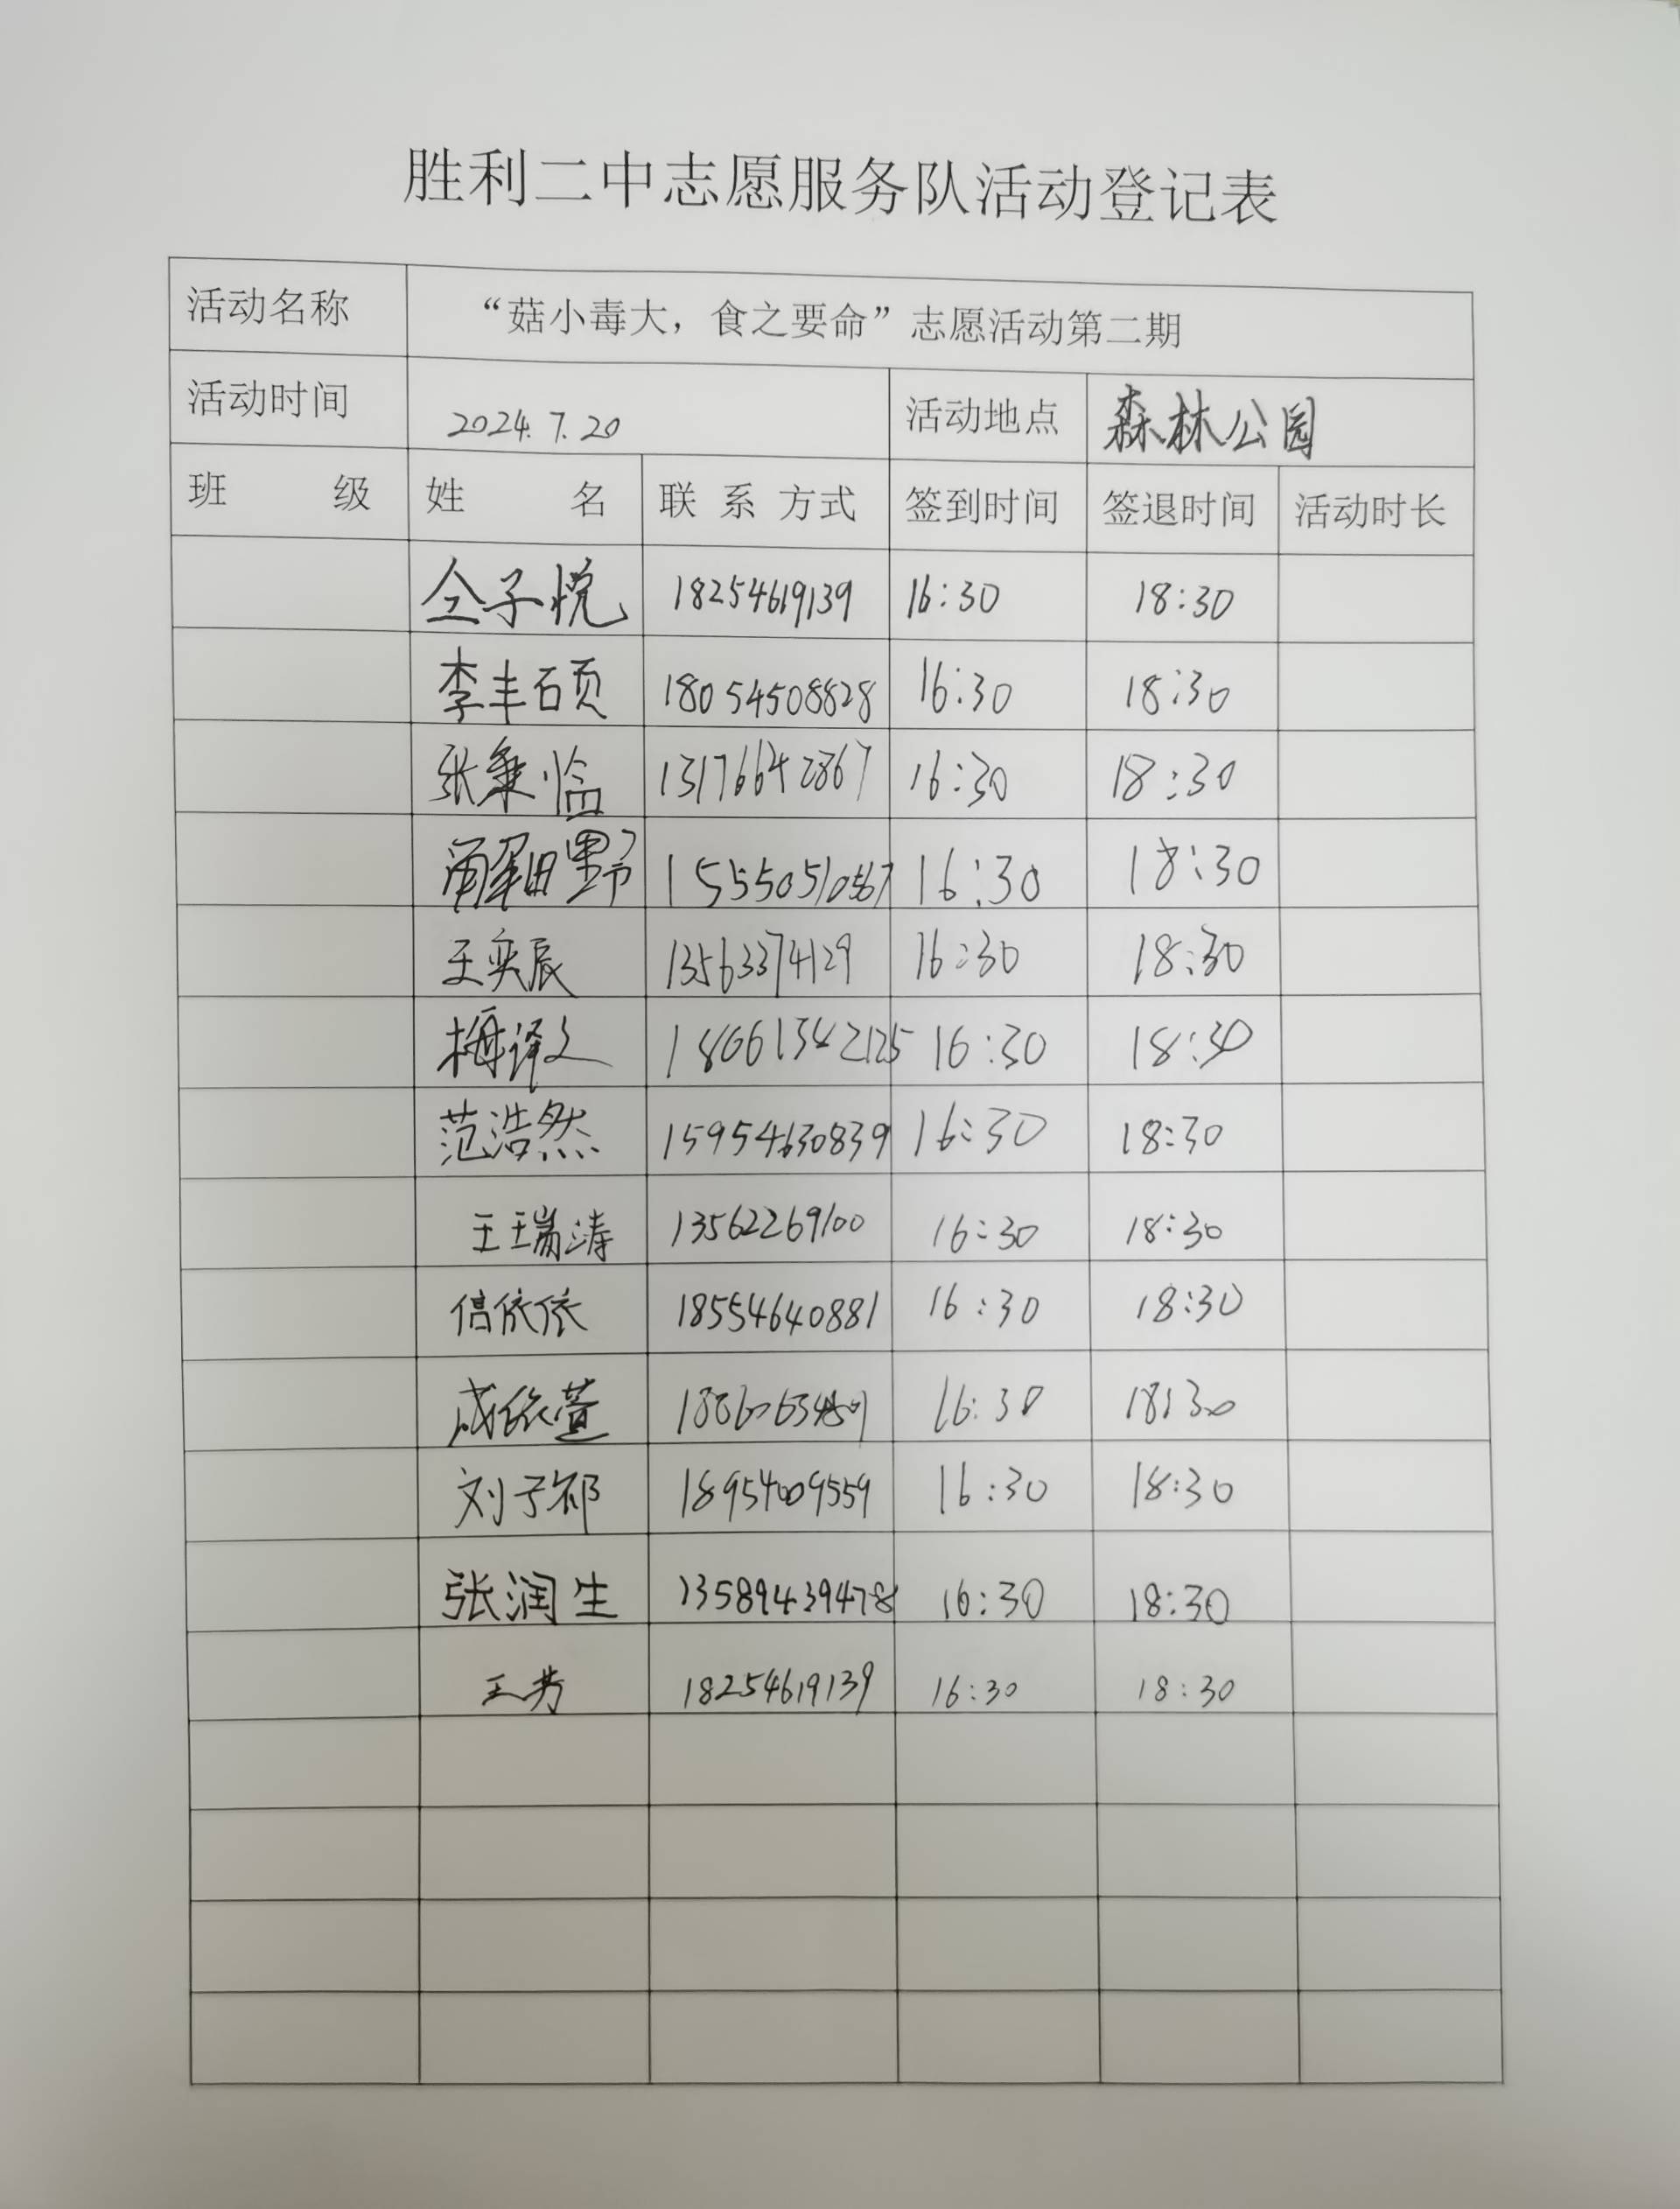 胜利二中志愿服务队活动登记表
活动名称 “菇小毒大，食之要命”志愿活动第二期
活动时间 2024.7.20 活动地点 森林公园
班 级 姓 名 联 系 方式 签到时间 签退时间 活动时长
仝子悦 18254619139 16:30 18:30
李丰硕 18054508828 16:30 18:30
张秉 13176642867 16:30 18:30
田野 16:30 18:30
王奕辰 13563374129 16:30 18:30
梅译文 18661342125 16:30 18:30
范浩然 15954630839 16:30 18:30
王瑞涛 13562269100 16:30 18:30
信依依 18554640881 16:30 18:30
成依萱 16:30 18:30
刘子祁 18954009559 16:30 18:30
张润生 13589439478 16:30 18:30
王芳 18254619139 16:30 18:30